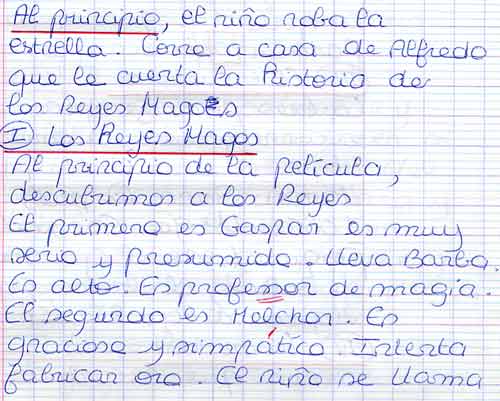 Al principio, el niño roba la
estrella. Corre a casa de Alfredo
que le cuenta la historia de
los Reyes Magos
I Los Reyes Magos
Al principio de la película,
descubrimos a los Reyes
El primero es Gaspar es muy
serio y presumido. Lleva Barba.
Es alto. Es professor de magia.
El segundo es Melchor. Es
gracioso y simpático. Intenta
fabricar oro. El niño se llama